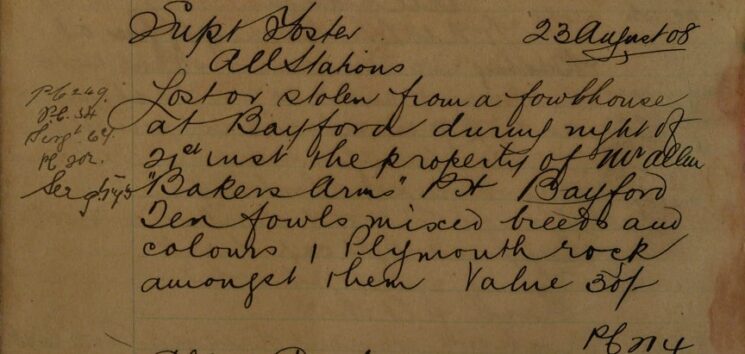 Supt Foster 23 August 08
All Stations
Lost or stolen from a fowlhouse
at Bayford during night of
21st inst the property of Mr Allen
"Bakers Arms" PH Bayford
Ten fowls mixed breeds and
colours, 1 Plymouth rock
amongst them Value 30/-
PC 249.
P.C. 34
Sergt. 69.
PC 202.
Sergt
PC 274